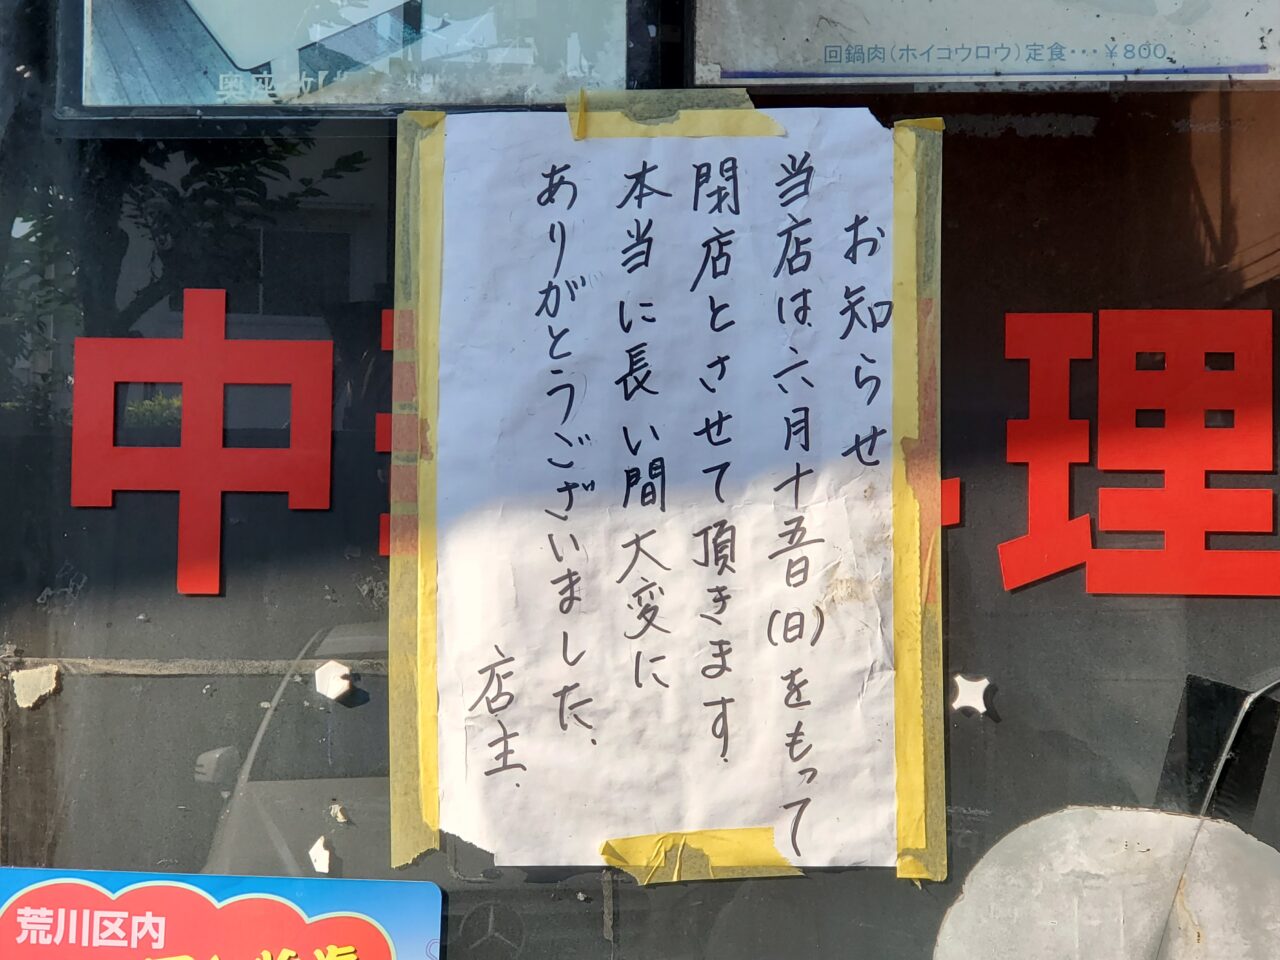 回鍋肉(ホイコウロウ)定食・・・¥800
お知らせ
当店は六月十五日(日)をもって
閉店とさせて頂きます.
本当に長い間大変に
ありがとうございました.
店主.
中
理
荒川区内